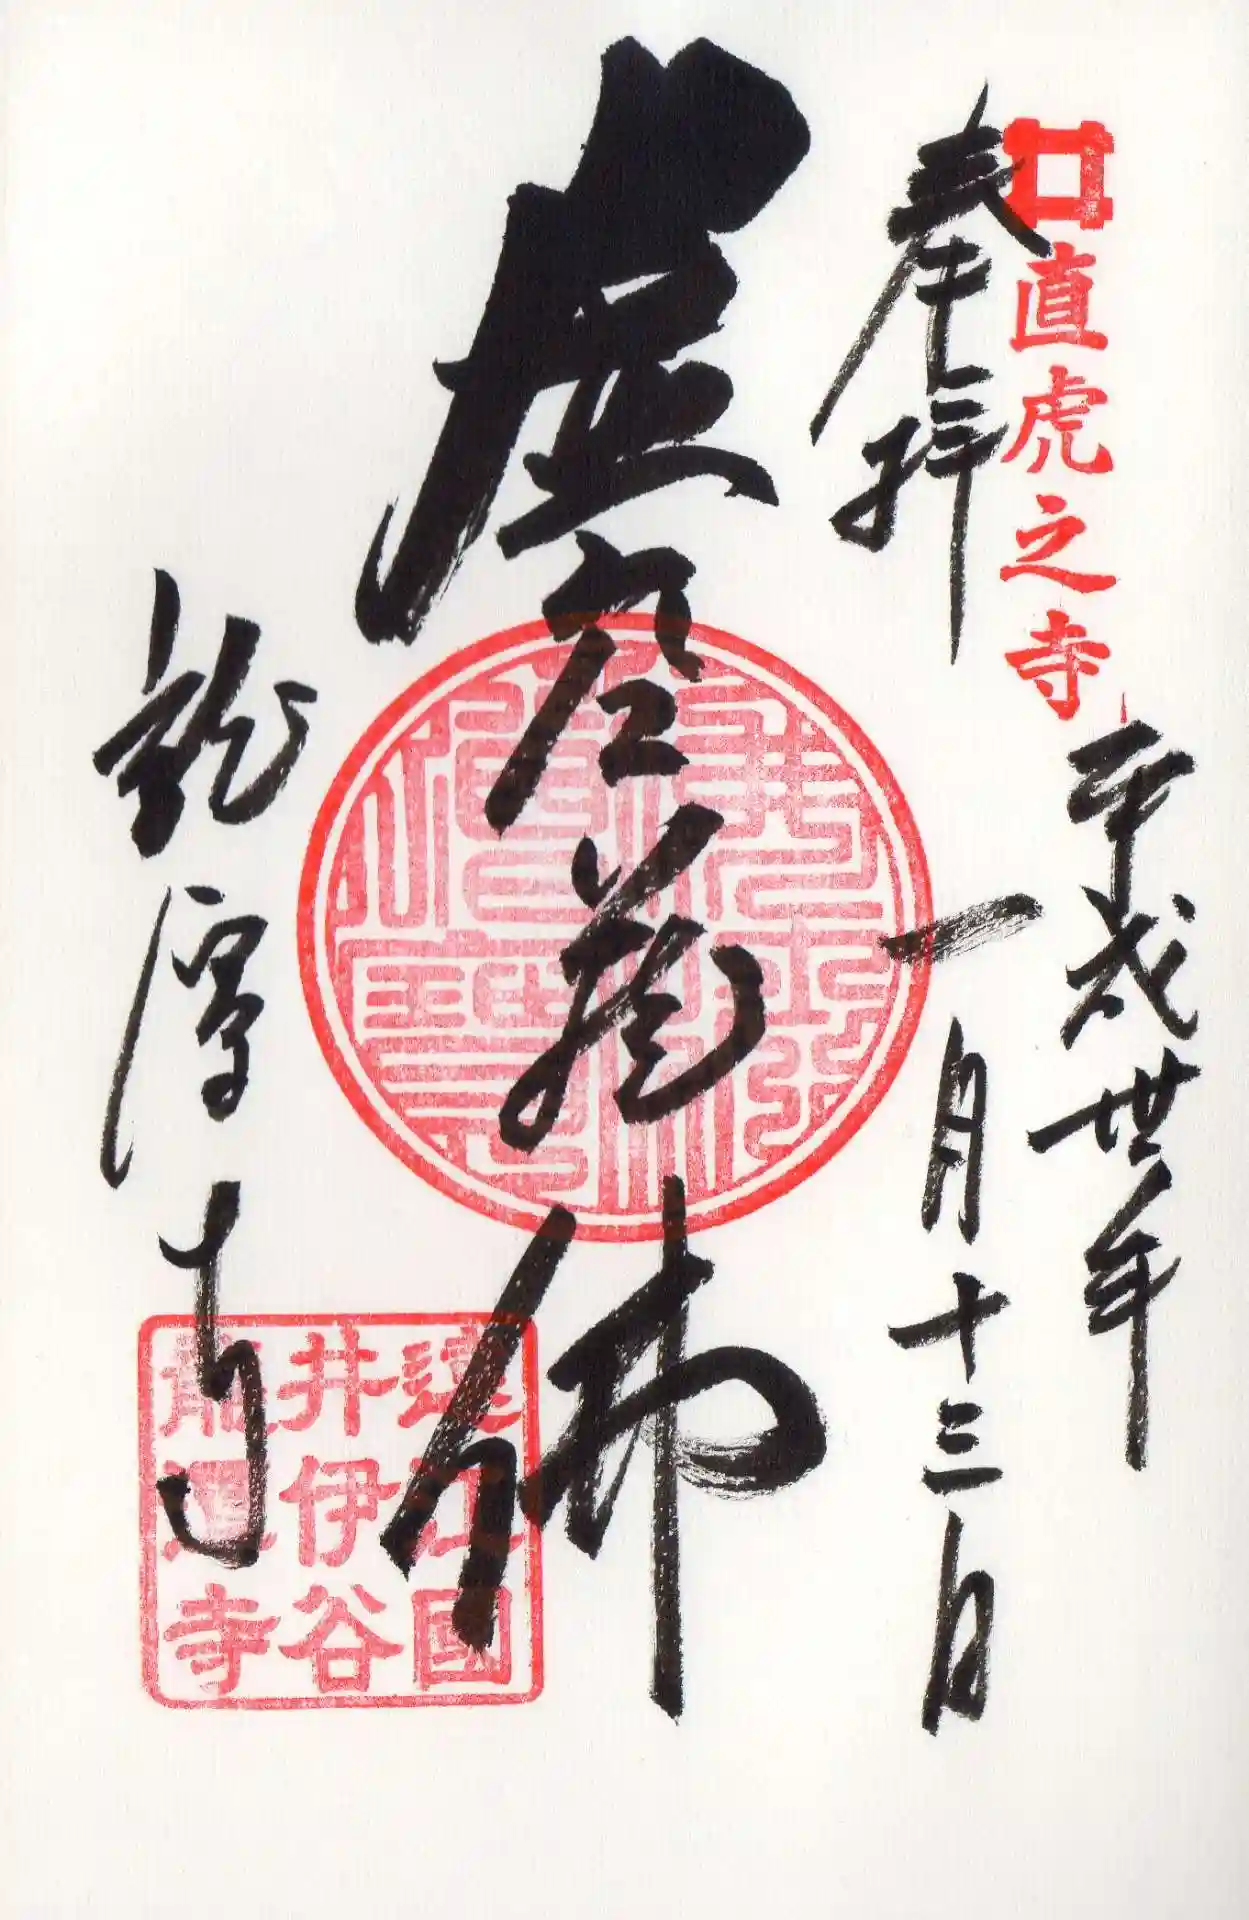 直虎之寺
奉拝
平成丗年
一月十三日
虚空蔵佛
龍潭寺
遠江國
井伊谷
龍潭寺